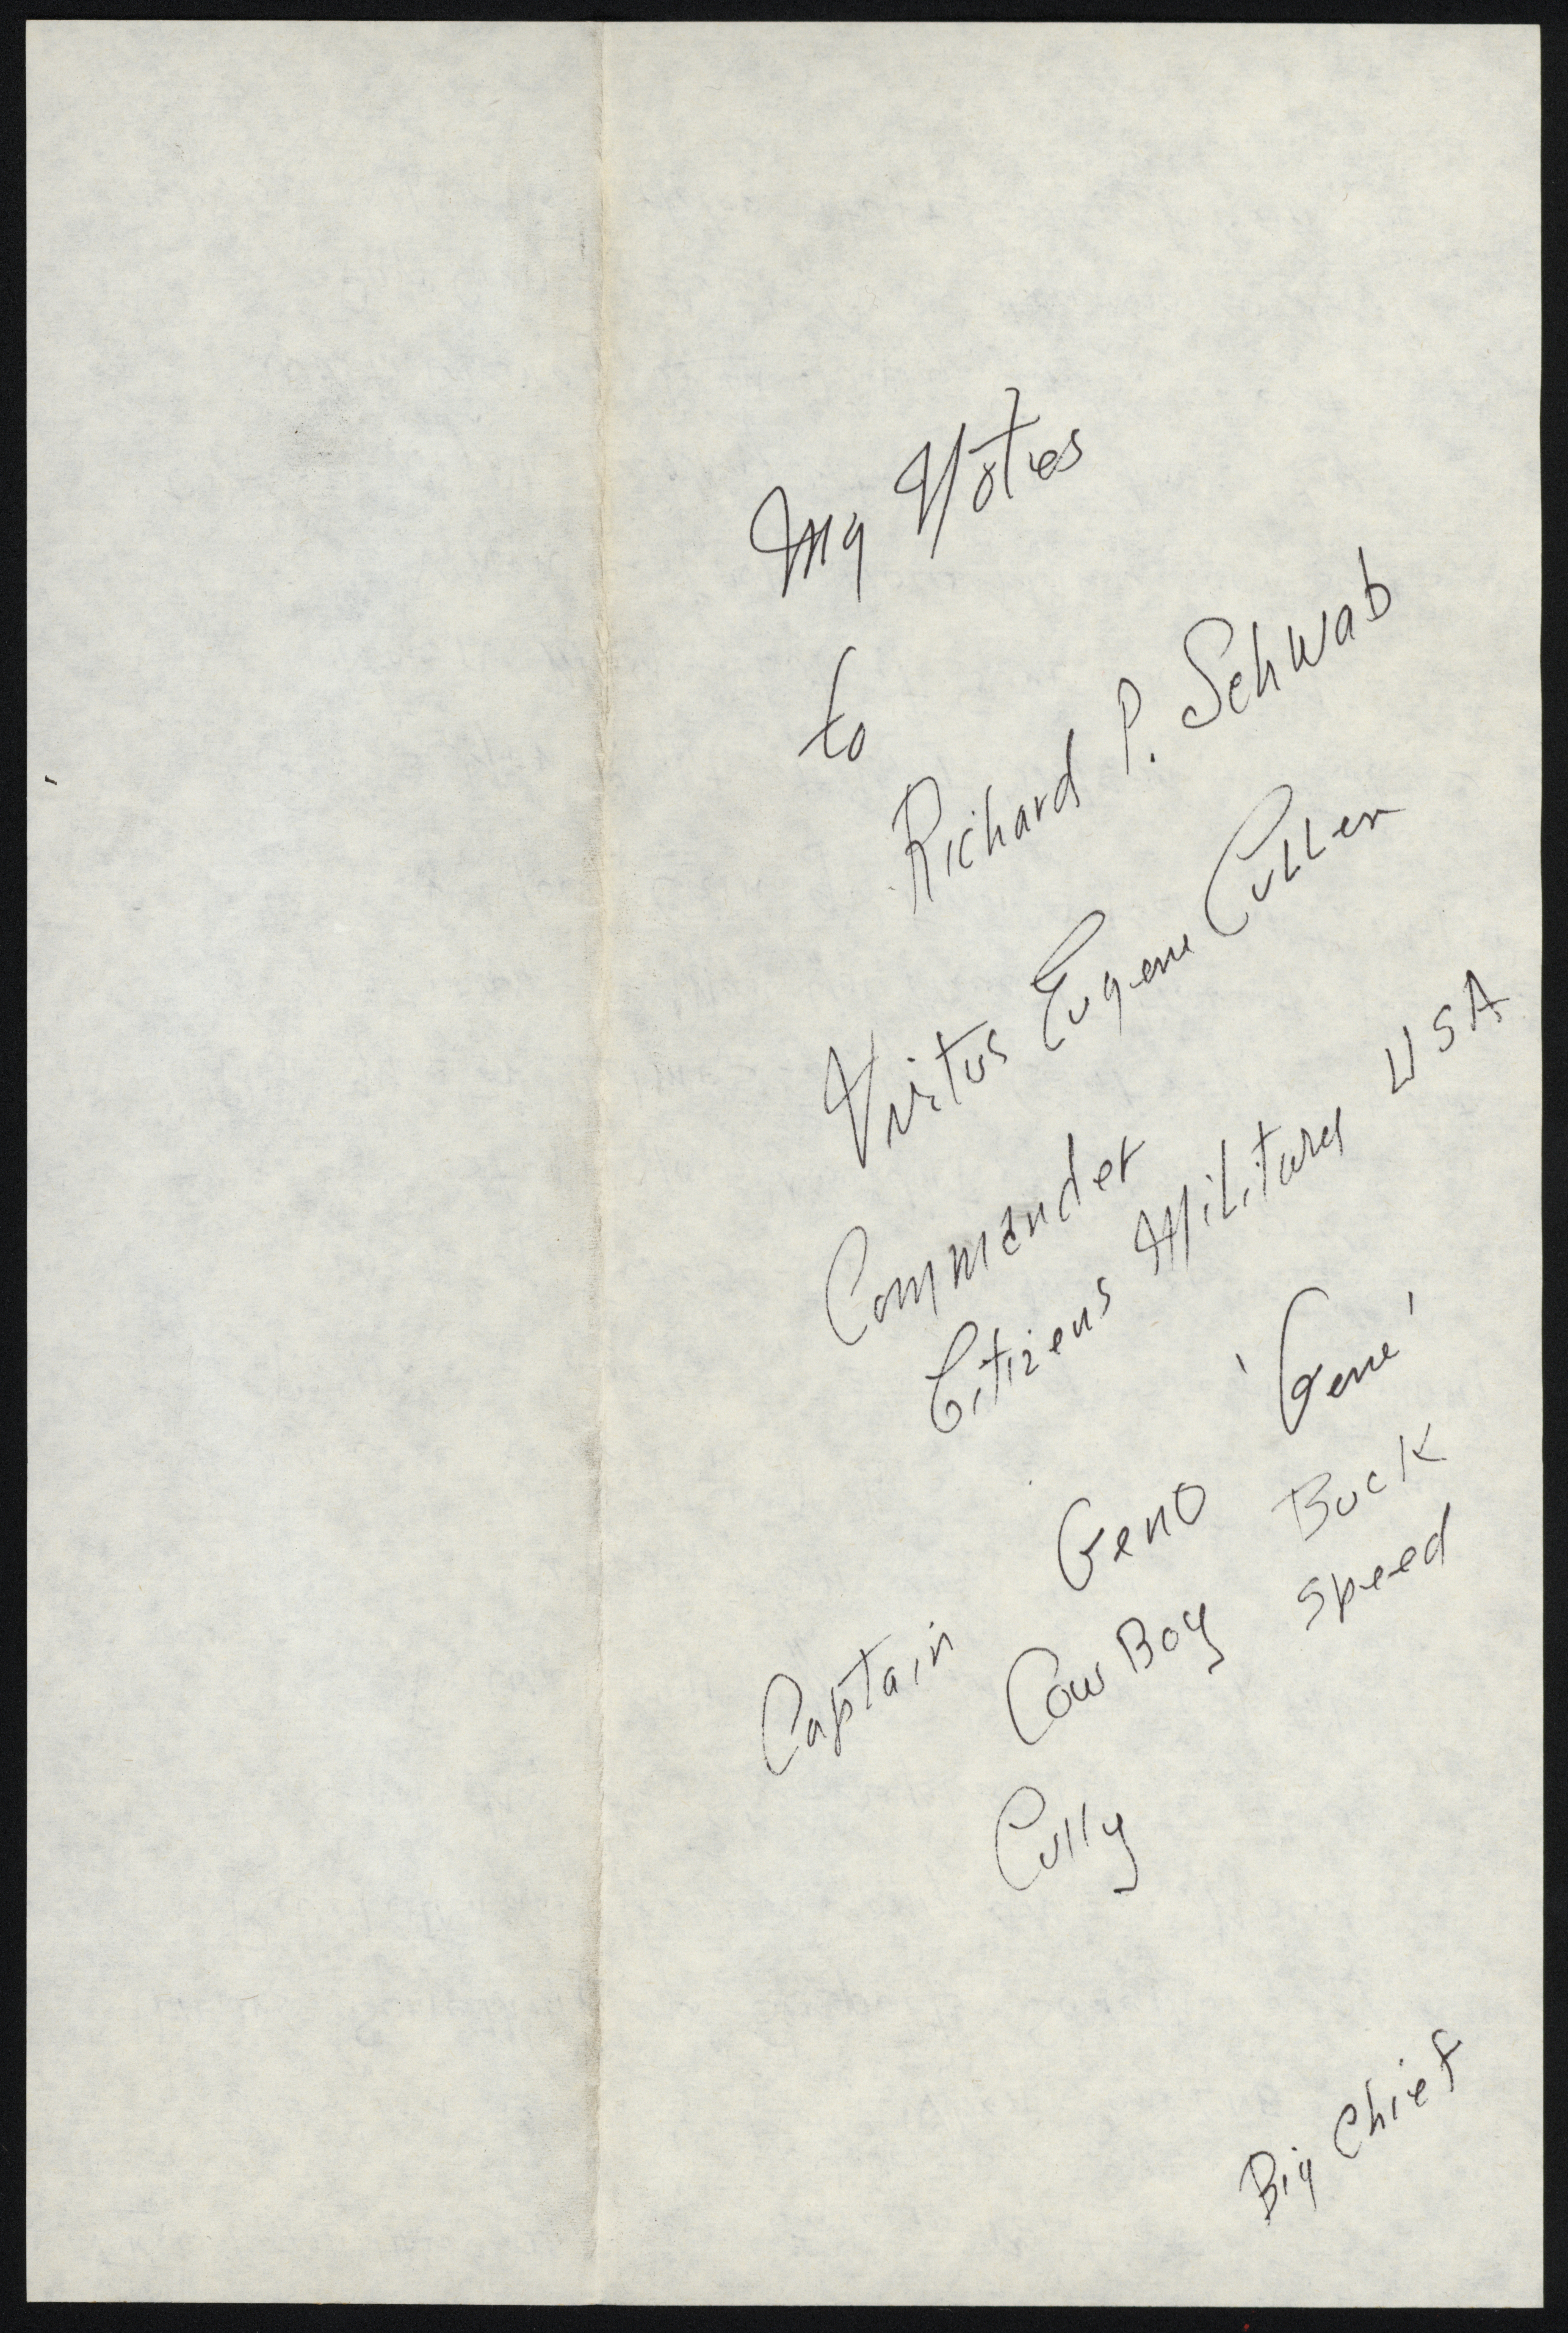 My Notes
to
Richard P. Schwab
Vvitus Eugene Cullen
Commander
Citizens Military USA
'Gene'
Captain Geno Buck
Cow Boy Speed
Cully
Big Chief